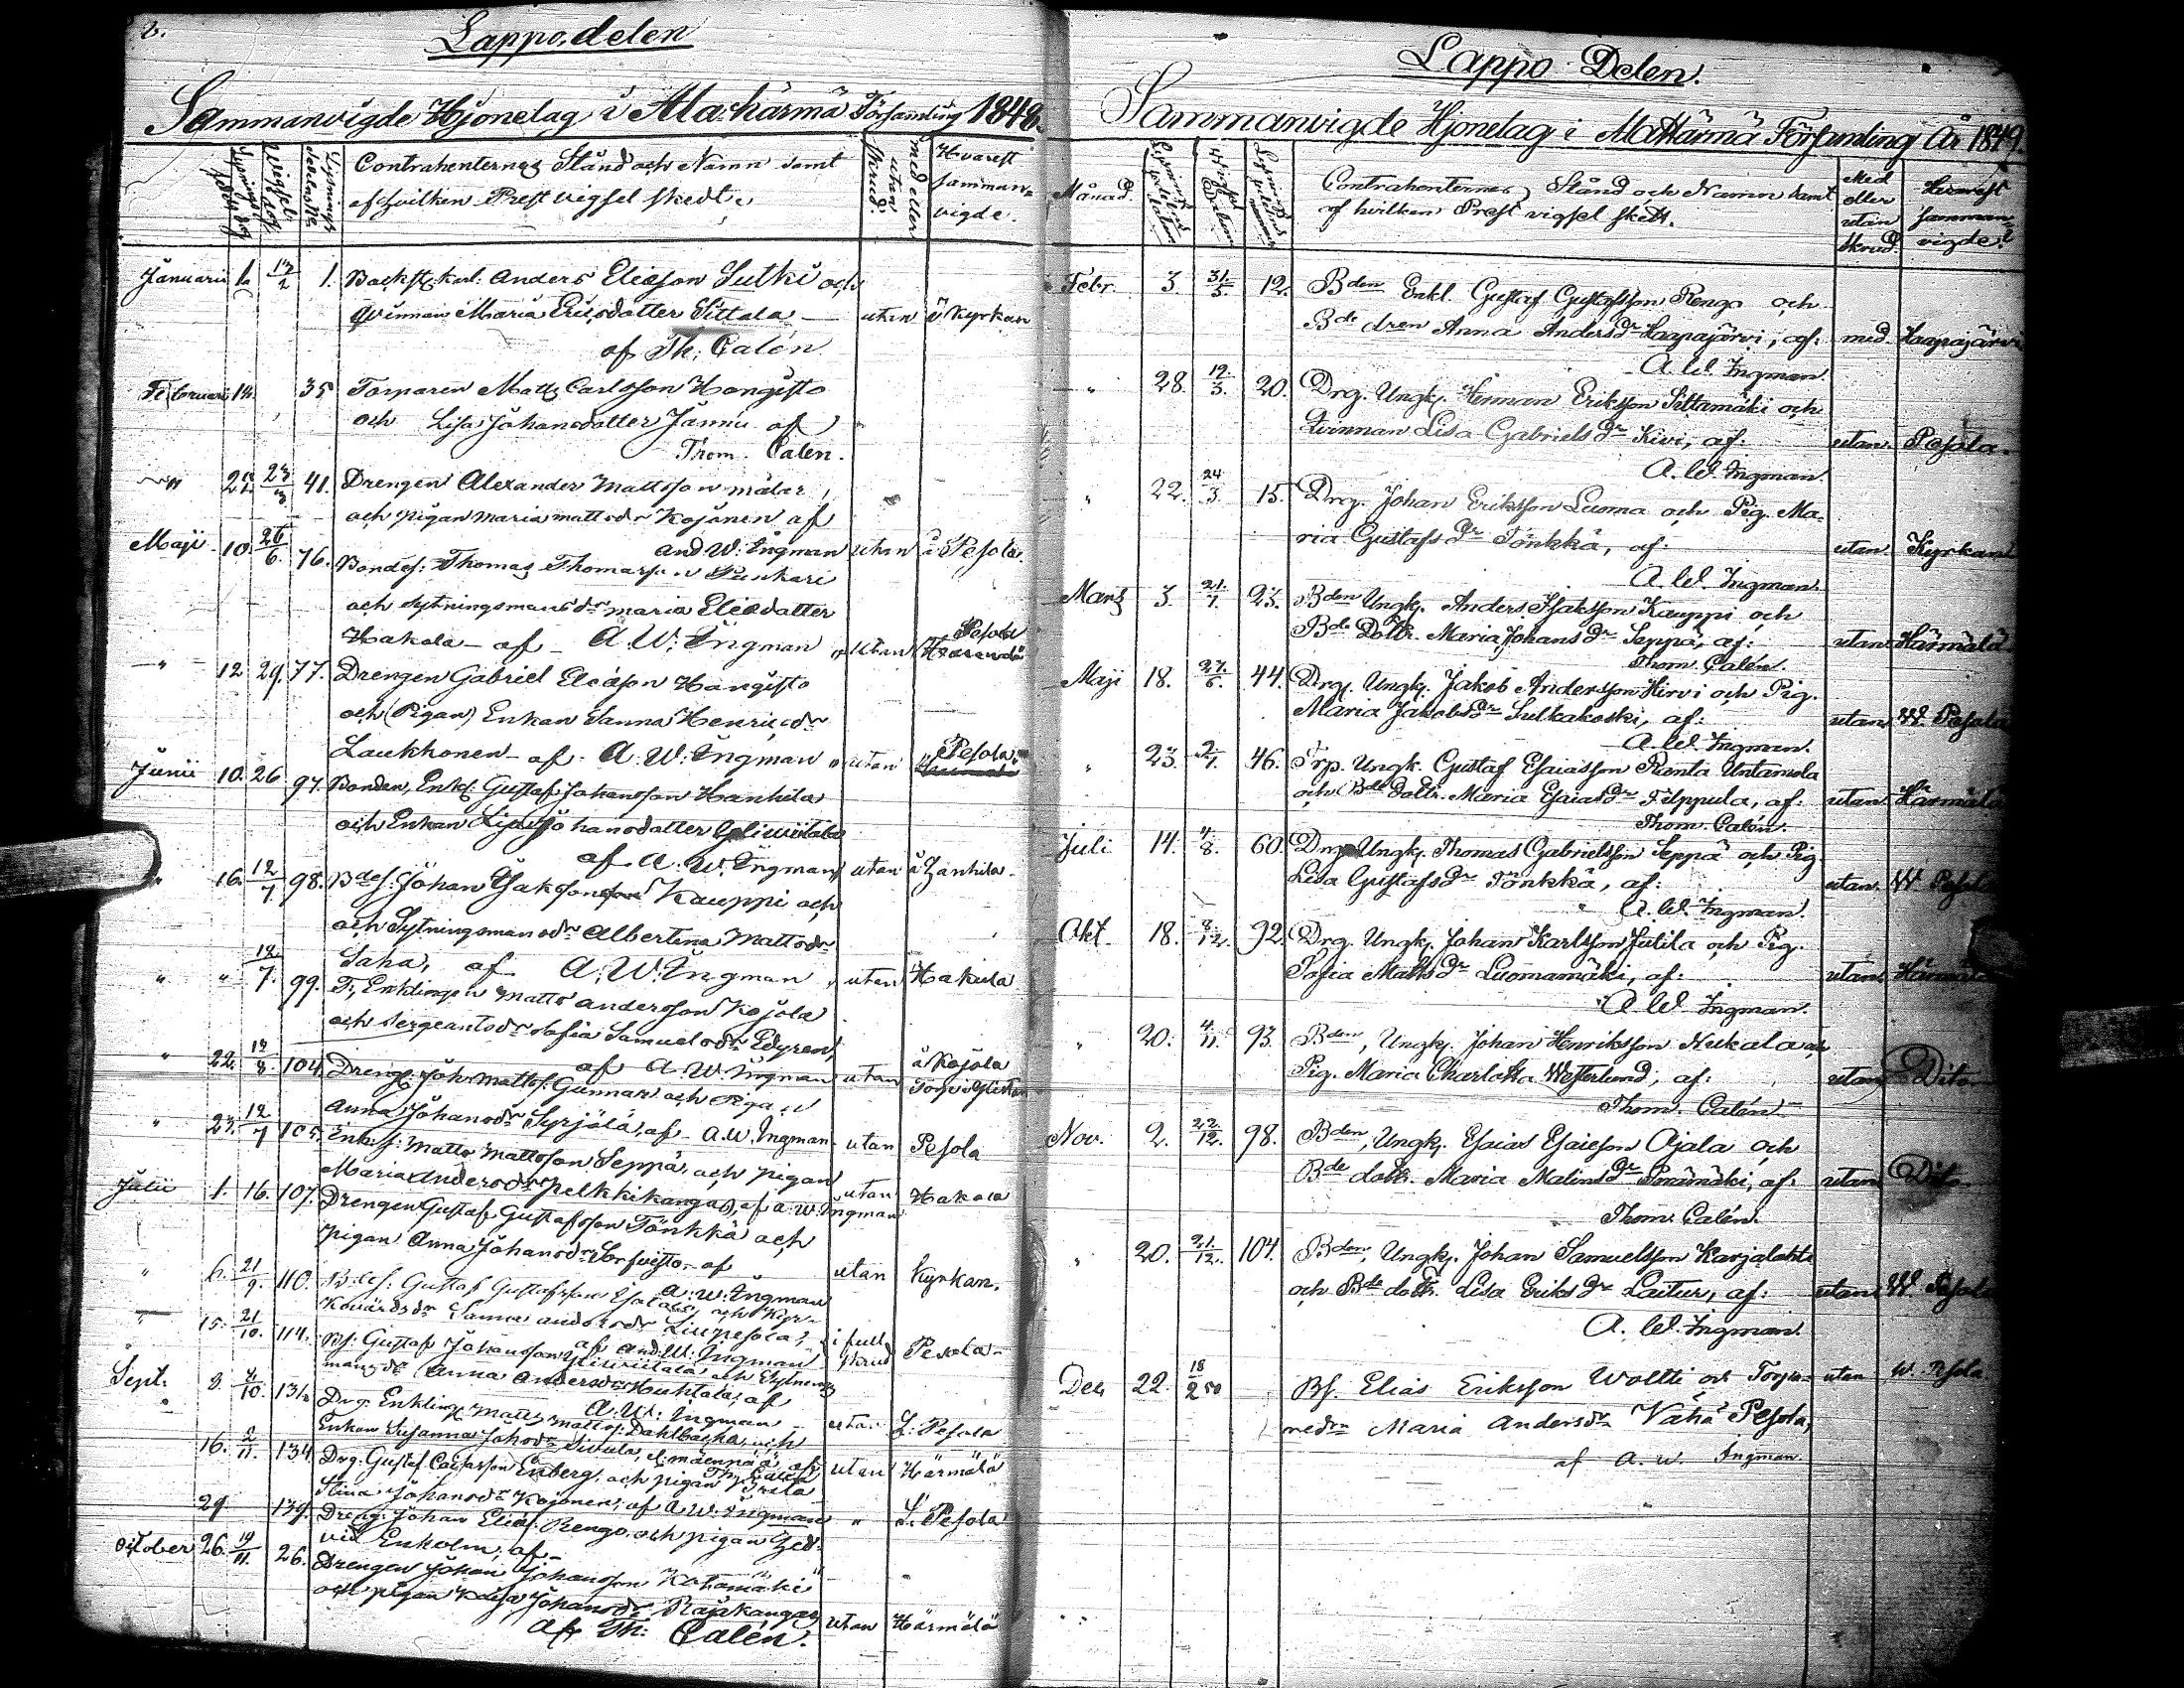 Lappo, delen
Sammanvigde Hjonelag i Ala-härmä Församling 1848.
Contrahenternas Stånd och Namn samt
af hvilken Prest vigsel skedt.
med eller utan skrud.
Hvarest samman-
vigde.
Januarii 12/2 1. Anders Eliasson Sulki och
qvinnan Maria Ericsdotter Sittala utan i Kyrkan
af Th: Calén
Februari 14. 35 Torparen Matts Carlsson Hongisto
och Lisa Johansdotter Jannu af
Thom. Calen.
23/3 41. Drengen Alexander Mattsson
och pigan Maria Mattsdr Kojonen af
And W: Ingman utan å Pesola.
Maji 10. 26/6. 76. Bondes: Thomas Thomass: Punkari
och Sytningsmansdr Maria Eliedatter
Hakola - af - A. W: Ingman utan Pesola
12 29. 77. Drengen Gabriel Eliasson Hangisto
och (Pigan) Enkan Sanna Henricsdr
Laukhonen - af. A. W: Ingman utan Pesola
Junii 10. 26 97. Bonden, Enkl: Gustaf Johansson Hanhila
och Enkan Lisa Johansdatter Yliviitala
af A. W. Ingman utan å Hanhila
16. 12/7 98. Bdes: Johan Isaksson Kauppi och
och Sytningsmansdr Albertina Mattsdr
Saha, af A. W. Ingman utan Hakola
" " 12/7. 99. Enklingen Matts Andersson Kojola
och Sergeantsdr Sofia Samuelsdr Edgren,
af A. W. Ingman utan å Kojola
" 22. 12/8. 104. Dreng: Joh: Mattss: Gunnari och Pigan
Anna Johansdr Syrjälä, af A. W. Ingman utan Pesola
" 23. 12/7 105. Enkl: Matts Mattsson Seppä, och pigan
Maria Andersdr Pelkkikangas, af A. W. Ingman utan Hakola
Julii 1. 16. 107. Drengen Gustaf Gustafsson Tönkkä och
pigan Anna Johansdr af
A: W: Ingman utan Kyrkan.
" 6. 21/9. 110. Bdes: Gustaf Gustafsson och Kyr-
Sanna Andersdr Liupesola,
af And: W: Ingman i full skrud Pesola
15. 21/10. 114. Bs: Gustaf Johansson Yliviitala och Sytnings-
mansdr Anna Andersdr Huhtala, af
A: W: Ingman utan L: Pesola
Sept. 8. /10. 131. Drg: Enkling Matts Mattss: Dahlbacka, och
Enkan Susanna Johsdr Sivula, af
Th Calén utan Härmälä
16. 2/11. 134. Drg: Gustaf Carlsson Enberg, och pigan
Stina Johansdr Kojonen, af A. W. Ingman " L: Pesola
29. 139. Dreng: Johan Elias: Rengo, och pigan Hed-
vid Enholm, af -
October 26. 19/11. 26. Drengen Johan Johansson Katamäki
och pigan Kaisa Johansdr Rajakangas
af Th: Calén. utan Härmälä
Lappo Delen.
Sammanvigde Hjonelag i AlaHärmä Församling År 1849.
Månad.
Contrahenternas Stånd och Namn samt
af hvilken Prest vigsel skett.
Med eller utan skrud.
Hvarest samman-
vigde.
Febr. 3. 31/3. 12. Bden Enkl. Gustaf Gustafsson Rengo och
Bde dren Anna Andersdr Haapajärvi, af: med Haapajärvi
A. W. Ingman.
" 28. 12/3. 20. Drg. Ungk. Herman Eriksson Siltamäki och
Qvinnan Lisa Gabrielsdr Kivi, af: utan. Pesola.
A. W. Ingman.
" 22. 24/3. 15. Drg. Johan Eriksson Luoma och Pig. Ma-
ria Gustafsdr Tönkkä, af: utan. Kyrkan
A. W. Ingman.
Mars 3. 21/7. 23. Bden Ungk. Anders Isaksson Kauppi och
Bde Dottr. Maria Johansdr Seppä, af: utan Härmälä
Thom. Calén.
Maji 18. 27/6. 44. Drg. Ungk. Jakob Andersson Hirvi och Pig.
Maria Jakobsdr Sulkakoski, af: utan W. Pesola
A. W. Ingman.
" 23. 2/7. 46. Trp. Ungk. Gustaf Esaiasson Ranta Untamola
och Bde Dottr. Maria Esaiasdr Filppula, af: utan Härmälä
Thom. Calén.
Juli 14. 4/8. 60. Drg. Ungk. Thomas Gabrielsson Seppä och Pig.
Lisa Gustafsdr Tönkkä, af: utan. W. Pesola
A. W. Ingman.
Okt. 18. /12. 92. Drg. Ungk. Johan Karlsson Julila och Pig.
Sofia Mattsdr Luomamäki, af: utan. Härmälä
A. W. Ingman.
" 20. 4/11. 93. Bden, Ungk. Johan Henriksson Nukala och
Pig. Maria Charlotta Westerlund, af: utan Dito
Thom. Calén
Nov. 2. 22/12. 98. Bden, Ungk. Esaias Esaiesson Ojala och
Bde dottr. Maria Malinsdr af: utan Dito
Thom. Calén.
" 20. 21/12. 104. Bden, Ungk. Johan Samuelsson Karjalahti
och Bde dottr. Lisa Eriksdr Laituri, af: utan W Pesola
A. W. Ingman.
Dec 22. 18/2 50 Bs. Elias Eriksson Woltti och Torpa-
redrn Maria Andersdr Vähä Pesola, utan W. Pesola
af A. W. Ingman.